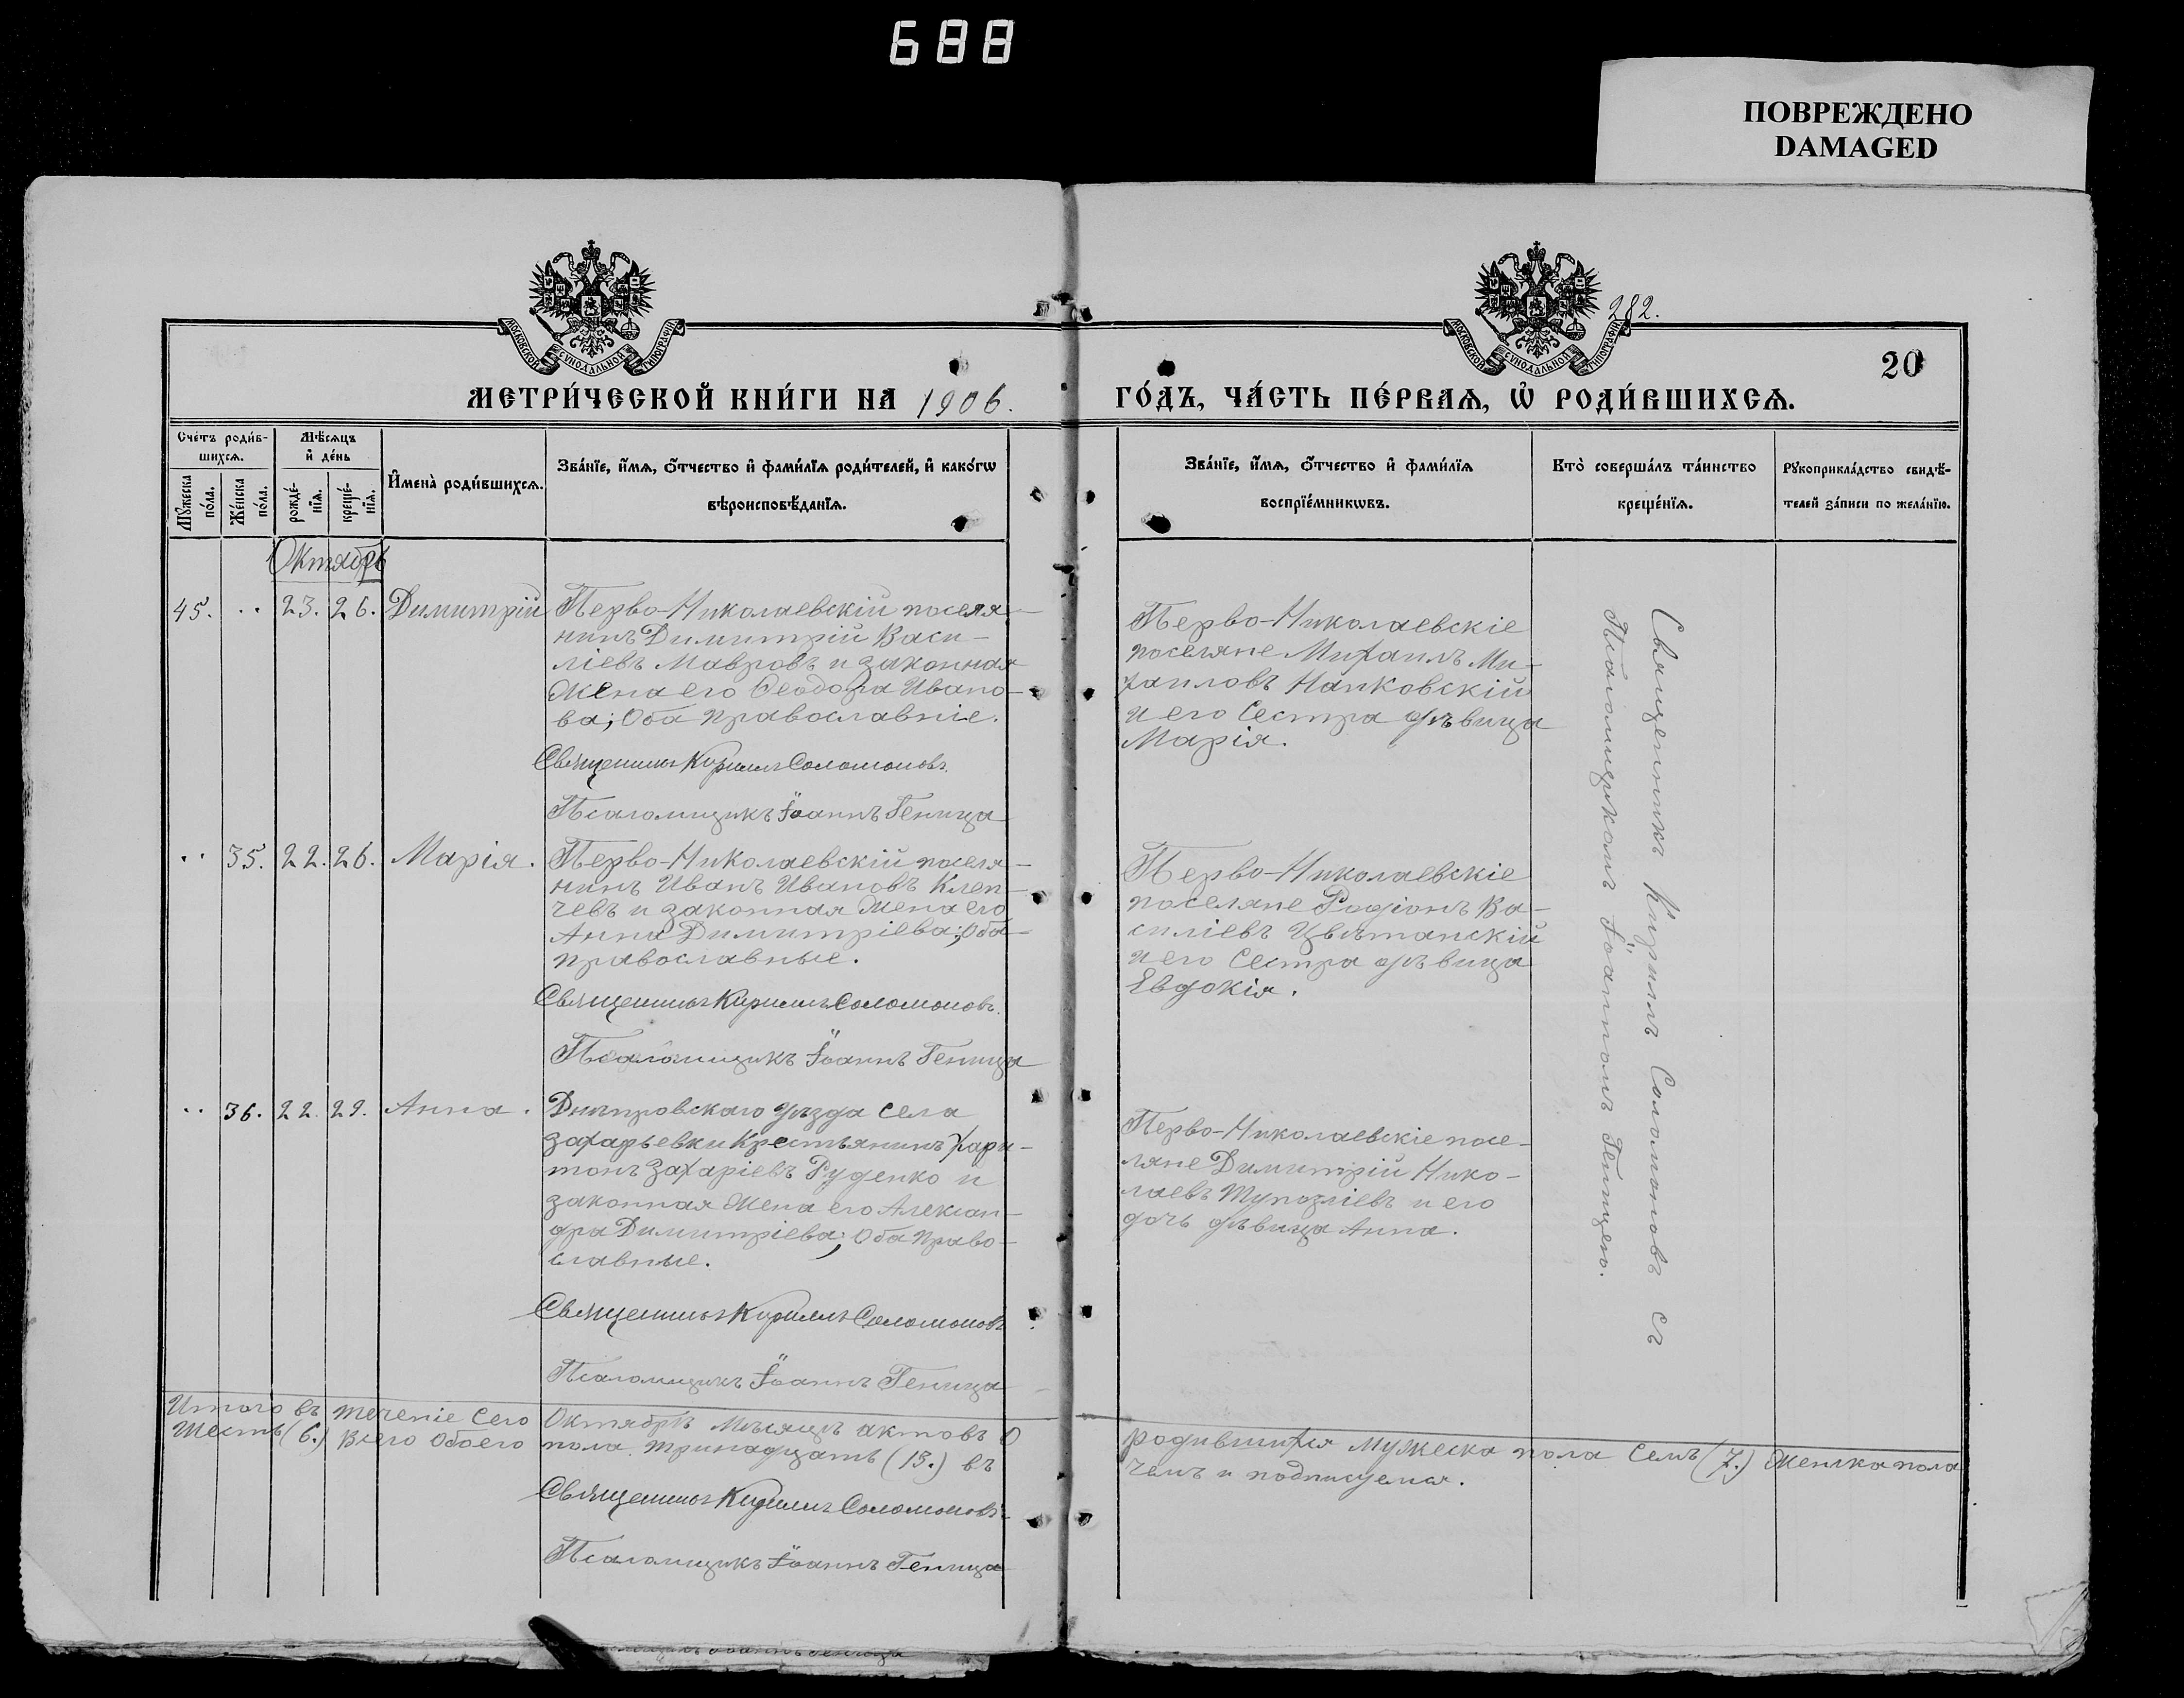 688
ПОВРЕЖДЕНО
DAMAGED
282.
20
МОСКОВСКОЙ СѴНОДАЛЬНОЙ ТИПОГРАФІИ
МОСКОВСКОЙ СѴНОДАЛЬНОЙ ТИПОГРАФІИ
МЕТРИ́ЧЕСКОЙ КНИ́ГИ НА 1906.
ГО́ДЪ, ЧА́СТЬ ПЕ́РВАѦ, Ѡ҆ РОДИ́ВШИХСѦ.
Сче́тъ роди́в-
шихсѧ.
Мѣ́сѧцъ
и҆ де́нь
Мꙋжеска
по́ла.
Же́нска
по́ла.
рожде́-
нїѧ.
креще́-
нїѧ.
И҆мена̀ роди́вшихсѧ.
Зва́нїе, и҆́мѧ, ѻ҆́тчество и҆ фами́лїѧ роди́телей, и҆ како́гѡ
вѣроисповѣ́данїѧ.
Зва́нїе, и҆́мѧ, ѻ҆́тчество и҆ фами́лїѧ
воспрїе́мникѡвъ.
Кто̀ соверша́лъ та́инство
креще́нїѧ.
Рꙋкоприкла́дство свидѣ́-
телей за́писи по жела́нїю.
Октябрь
45. .. 23. 26. Димитрій
Перво-Николаевскій поселя-
нинъ Димитрій Васи-
ліевъ Мавровъ и законная
жена его Ѳеодора Ивано-
ва; Оба православніе.
Священникъ Кириллъ Соломоновъ
Псаломщикъ Іоаннъ Геница
Перво-Николаевскіе
поселяне Михаилъ Ми-
хаиловъ Напковскій
и его сестра дѣвица
Марія.
.. 35. 22. 26. Марія.
Перво-Николаевскій поселя-
нинъ Иванъ Ивановъ Клеп-
чевъ и законная жена его
Анна Димитріева; Оба
православные.
Священникъ Кириллъ Соломоновъ.
Псаломщикъ Іоаннъ Геница
Перво-Николаевскіе
поселяне Родіонъ Ва-
силіевъ Цвѣтанскій
и его сестра дѣвица
Евдокія.
.. 36. 22. 29. Анна.
Днѣпровскаго уѣзда села
Захарьевки крестьянинъ Хари-
тонъ Захаріевъ Руденко и
законная жена его Алексан-
дра Димитріева; Оба право-
славные.
Священникъ Кириллъ Соломоновъ
Псаломщикъ Іоаннъ Геница
Перво-Николаевскіе посе-
ляне Димитрій Нико-
лаевъ Тупозліевъ и его
дочь дѣвица Анна.
Священникъ Кириллъ Соломоновъ съ
Псаломщикомъ Іоанномъ Геницею.
Итого въ теченіе сего Октябрѣ мѣсяцѣ актовъ о родившихся мужеска пола семь (7.) женска пола
шесть (6.) Всего обоего пола тринадцать (13.) въ чемъ и подписуемся.
Священникъ Кириллъ Соломоновъ
Псаломщикъ Іоаннъ Геница